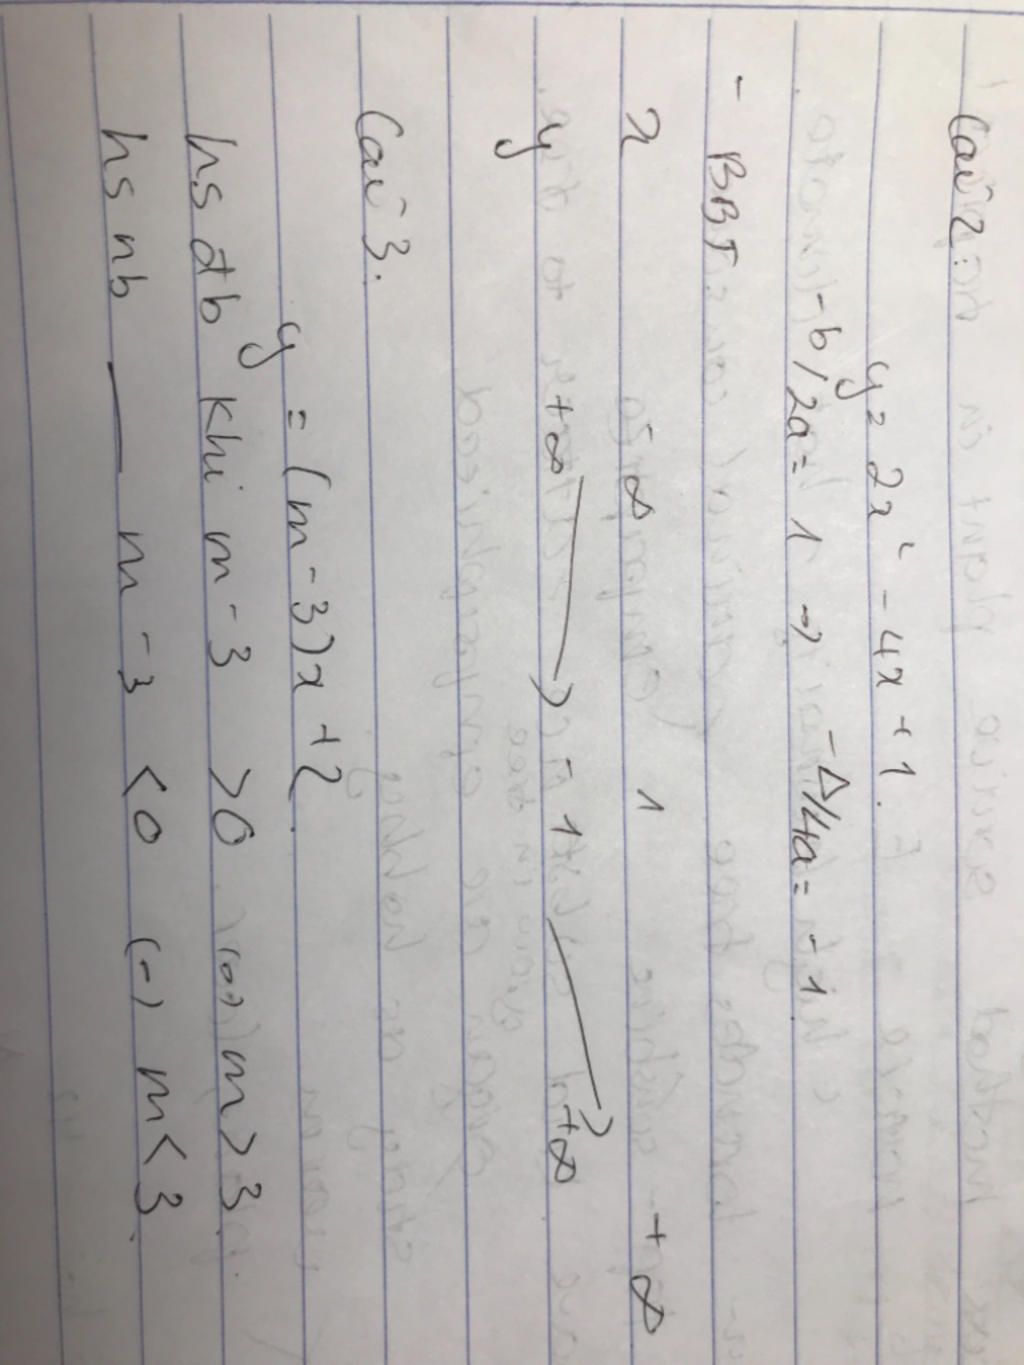 Câu 2:
y = 2x² - 4x + 1.
-b/2a = 1 => -Δ/4a = -1
- BBT
x -∞ 1 +∞
y +∞ -1 +∞
Câu 3.
y = (m-3)x + 2
hs đb khi m - 3 > 0 (=) m > 3
hs nb — m - 3 < 0 (=) m < 3.